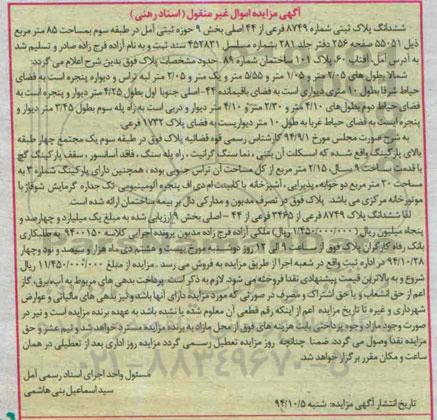 آگهی مزایده اموال غیر منقول (اسناد رهنی)
ششدانگ پلاک ثبتی شماره ۸۷۴۹ فرعی از ۴۴ اصلی بخش ۹ حوزه ثبتی آمل در طبقه سوم بمساحت ۸۵ متر مربع
ذیل ۵۵۰۵۱ صفحه ۲۵۶ دفتر جلد ۲۸۱ بشماره مسلسل ۴۵۲۸۳۱ سند ثبت و به نام آزاده فرج زاده صادر و تسلیم شد
به آدرس آمل، آفتاب ۶۰ پلاک ۱۰۱ ساختمان شماره ۸۹. حدود مشخصات پلاک فوق بدین شرح اعلام می گردد:
شمالا بطول های ۲/۰۵ متر و ۱/۰۵ متر و ۵/۵۵ متر و یک متر و ۲/۰۵ متر لبه تراس و دیواره پنجره است به فضای
حیاط شرقا بطول ۱۰ متری دیواری است به فضای باقیمانده ۴۴- اصلی جنوبا اول بطول ۴/۲۵ متر دیوار و پنجره به
فضای حیاط دوم بطول‌های ۴/۱۰ متر و ۲/۳۰ متر و ۴/۱۰ متر دیوار و دربی است به راه پله سوم بطول ۳/۴۵ متر دیوار و
پنجره ایست به فضای حیاط غربا به طول ۱۰ متر دیواریست به فضای پلاک ۱۷۳۲ فرعی.
به شرح صورت مجلس مورخ ۹۴/۹/۱ کارشناس رسمی قوه قضائیه پلاک فوق در طبقه سوم یک مجتمع چهار طبقه
بالای پارکینگ واقع شده که اسکلت آن بتنی، نما سنگ گرانیت، راه پله سنگ، فاقد آسانسور، سقف پارکینگ گچ
با قدمت ساخت ۹ سال، ۲/۱۵ متر مربع از کل مساحت آن تراس جنوبی بوده، همچنین دارای پارکینگ شماره ۳ به
مساحت ۳۰ متر مربع دو خوابه، پذیرایی، آشپزخانه با کابینت ام دی اف پنجره آلومینیومی تک جداره گرمایش شوفاژ با
موتورخانه مرکزی می باشد. پلاک فوق در تصرف مدیون و مدارکی دال بر بیمه ساختمان ارائه شده است.
لذا ششدانگ پلاک ۸۷۴۹ فرعی از ۳۴۶۵ فرعی از ۴۴ - اصلی بخش ۹ ارزیابی شده به مبلغ یک میلیارد و چهارصد و
پنجاه میلیون ریال (۱/۴۵۰/۰۰۰/۰۰۰ ریال) ملکی آزاده فرج زاده مدیون پرونده اجرایی کلاسه ۹۴۰۰۱۵۰ به طلبکاری
بانک رفاه کارگران پلاک فوق از ساعت ۹ الی ۱۲ روز دوشنبه مورخ بیست و هشتم دی ماه هزار و سیصد و نود وچهار
۹۴/۱۰/۲۸ در اداره ثبت واقع در شعبه اجرا از طریق مزایده به فروش می رسد. مزایده از مبلغ ۱/۴۵۰/۰۰۰/۰۰۰ ریال
شروع و به بالاترین قیمت پیشنهادی نقدا فروخته می شود. لازم به ذکر است پرداخت بدهی های مربوط به آب، برق، گاز
اعم از حق انشعاب و یا حق اشتراک و مصرف در صورتی که مورد مزایده دارای آنها باشد و نیز بدهی های مالیاتی و عوارض
شهرداری و غیره تا تاریخ مزایده اعم از اینکه رقم قطعی آن معلوم شده یا نشده باشد به عهده برنده مزایده است و نیز در
صورت وجود مازاد وجوه پرداختی بابت هزینه های فوق از محل مازاد به برنده مزایده مسترد خواهد شد و نیم عشر و حق
مزایده نقدا وصول می گردد. ضمنا چنانچه روز مزایده تعطیل رسمی گردد مزایده روز اداری بعد از تعطیلی در همان
ساعت و مکان مقرر برگزار خواهد شد.
مسئول واحد اجرای اسناد رسمی آمل
سید اسماعیل بنی هاشمی
تاریخ انتشار آگهی مزایده: شنبه ۹۴/۱۰/۵